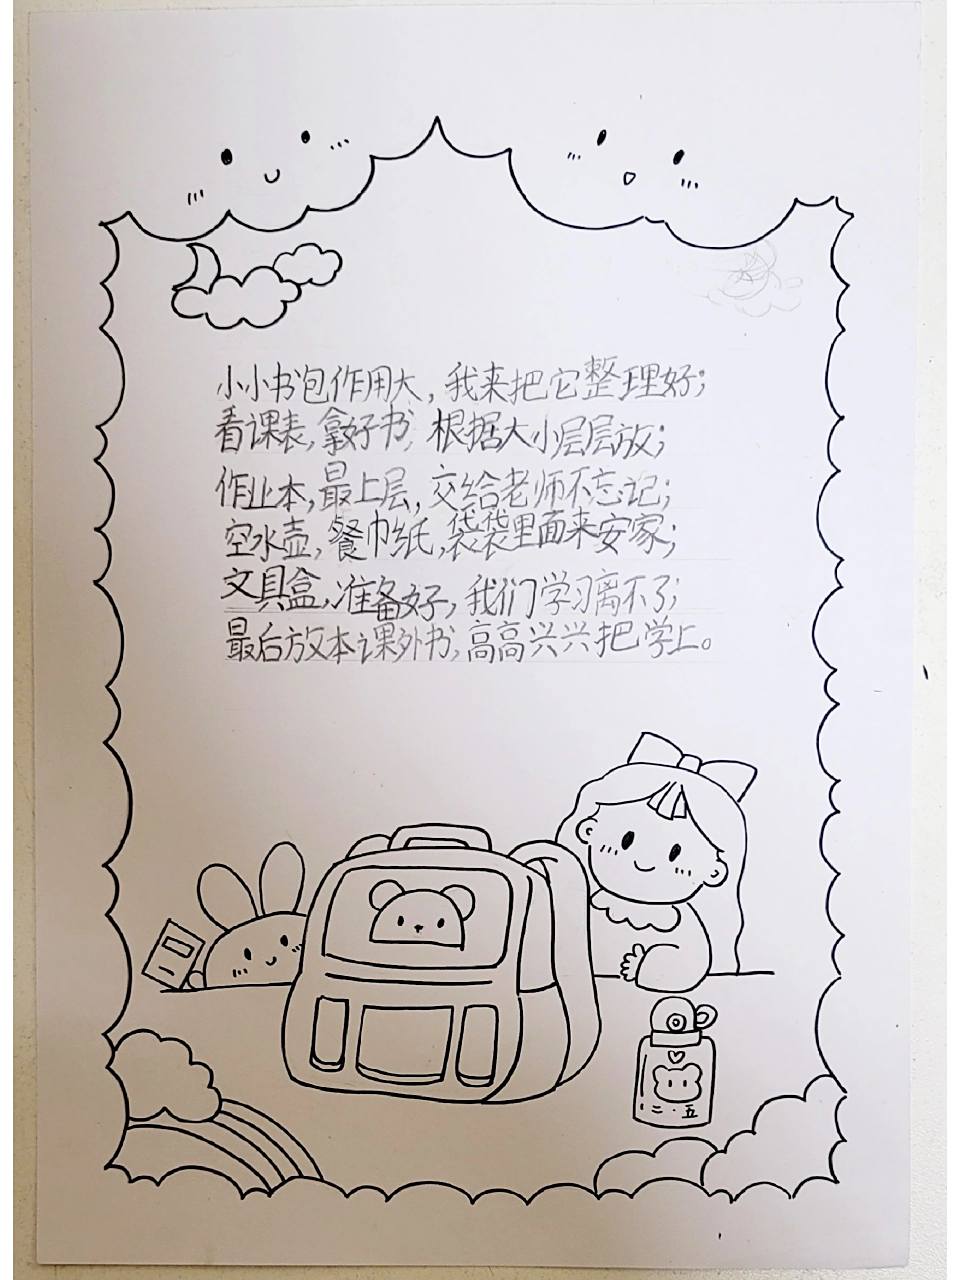 小小书包作用大，我来把它整理好；
看课表，拿好书，根据大小层层放；
作业本，最上层，交给老师不忘记；
空水壶，餐巾纸，袋袋里面来安家；
文具盒，准备好，我们学习离不了；
最后放本课外书，高高兴兴把学上。
二·五